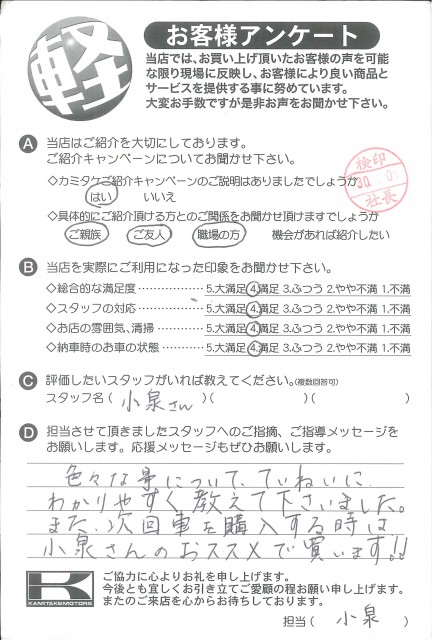 軽
お客様アンケート
当店では、お買い上げ頂いたお客様の声を可能
な限り現場に反映し、お客様により良い商品と
サービスを提供する事に努めています。
大変お手数ですが是非お声をお聞かせ下さい。
A 当店はご紹介を大切にしております。
ご紹介キャンペーンについてお聞かせ下さい。
検印
社長
◇カミタケご紹介キャンペーンのご説明はありましたでしょうか
はい いいえ
◇具体的にご紹介頂ける方とのご関係をお聞かせ頂けますでしょうか
ご親族 ご友人 職場の方 機会があれば紹介したい
B 当店を実際にご利用になった印象をお聞かせ下さい。
◇総合的な満足度 ············ 5.大満足 4.満足 3.ふつう 2.やや不満 1.不満
◇スタッフの対応 ············ 5.大満足 4.満足 3.ふつう 2.やや不満 1.不満
◇お店の雰囲気、清掃 ········ 5.大満足 4.満足 3.ふつう 2.やや不満 1.不満
◇納車時のお車の状態 ········ 5.大満足 4.満足 3.ふつう 2.やや不満 1.不満
C 評価したいスタッフがいれば教えてください。(複数回答可)
スタッフ名( 小泉さん )( )( )
D 担当させて頂きましたスタッフへのご指摘、ご指導メッセージを
お願いします。応援メッセージもぜひお願いします。
色々な事について、ていねいに
わかりやすく教えて下さいました。
また、次回車を購入する時は
小泉さんのおススメで買います!!
K
KAMITAKEMOTORS
ご協力に心よりお礼を申し上げます。
今後とも宜しくお引き立てご愛顧の程お願い申し上げます。
またのご来店を心からお待ちしております。
担当( 小泉 )